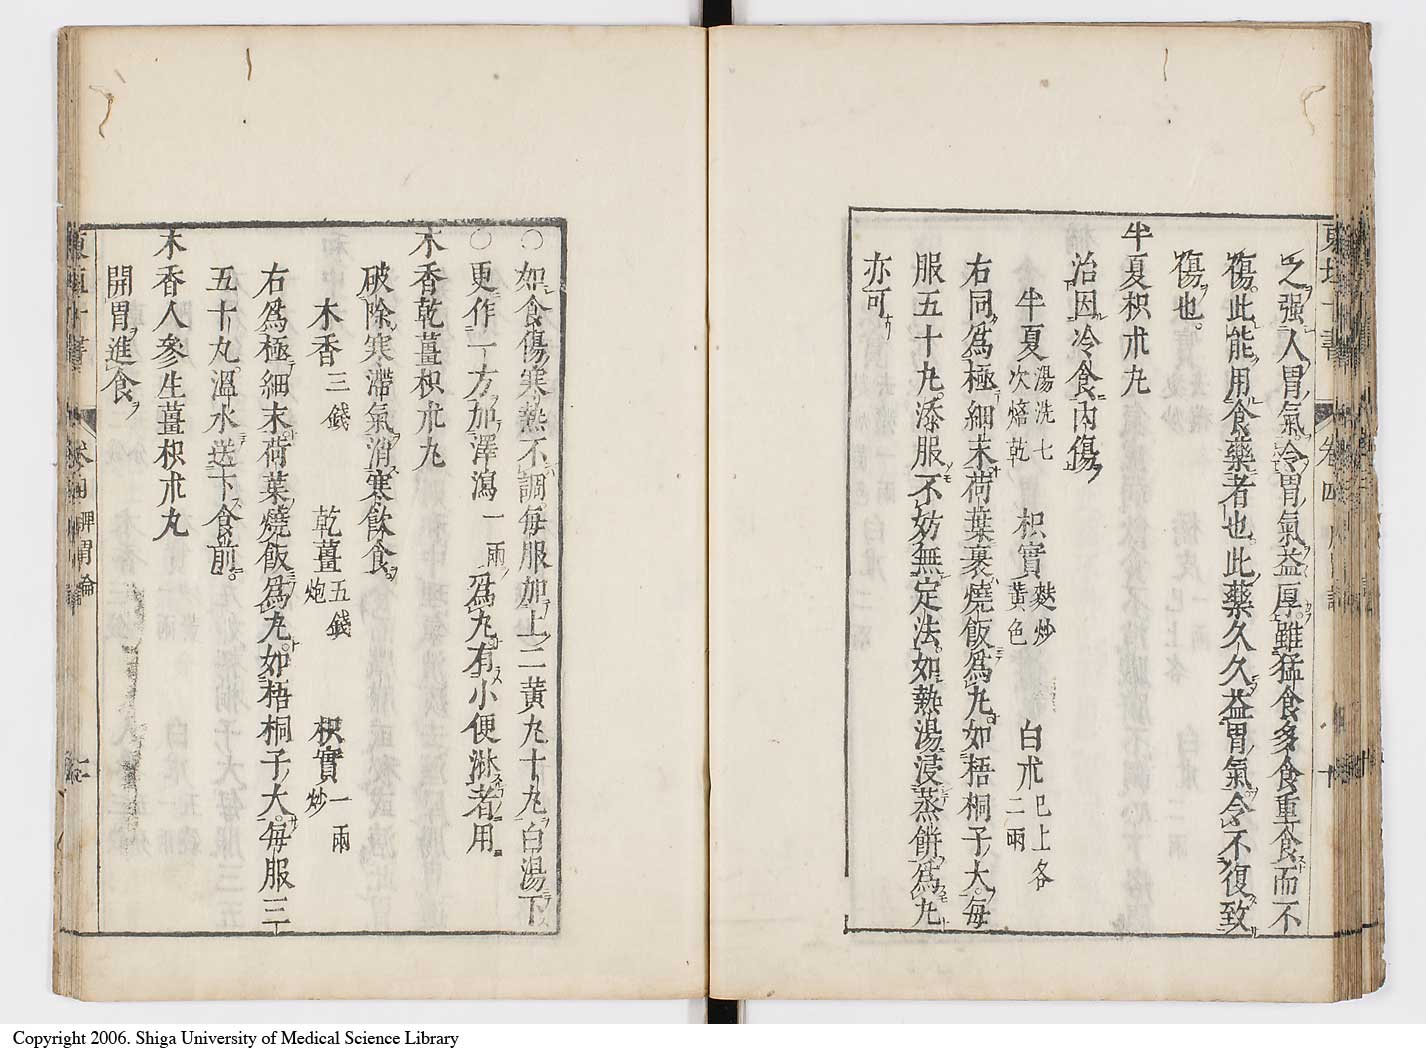 之强人胃氣令胃氣益厚雖猛食多食重食而不
傷此能用食藥者也此藥久久益胃氣令不復致
傷也
半夏枳朮丸
治因冷食内傷
半夏湯洗七次焙乾 枳實麩炒黄色 白朮已上各二兩
右同爲極細末荷葉裹燒飯爲丸如梧桐子大每
服五十丸添服不妨無定法如熱湯浸蒸餅爲丸
亦可
○如食傷寒熱不調每服加上二黄丸十丸白湯下
○更作一方加澤瀉一兩爲丸有小便淋者用
木香乾薑枳朮丸
破除寒滯氣消寒飲食
木香三錢 乾薑五錢炮 枳實一兩炒
右爲極細末荷葉燒飯爲丸如梧桐子大每服三
五十丸溫水送下食前
木香人參生薑枳朮丸
開胃進食
脾胃論
Copyright 2006. Shiga University of Medical Science Library